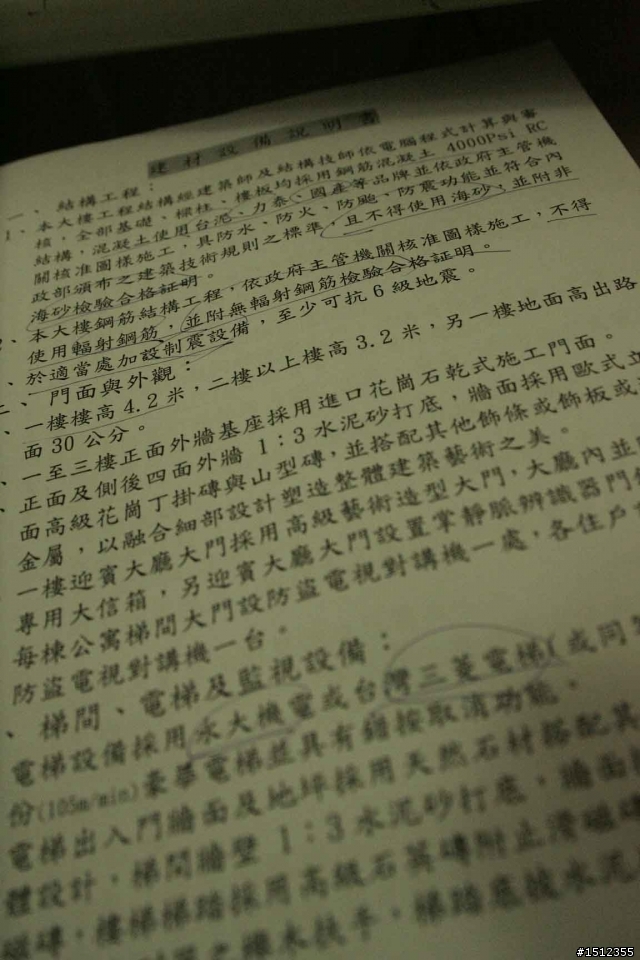 建材設備說明書
一、結構工程：
1、本大樓工程結構經建築師及結構技師依電腦程式計算與審
核，全部基礎、樑柱、樓板均採用鋼筋混凝土 4000Psi RC
結構，混凝土使用台泥、力泰、國產等品牌並依政府主管機
關核准圖樣施工，具防水、防火、防颱、防震功能並符合內
政部頒布之建築技術規則之標準，且不得使用海砂，並附非
海砂檢驗合格証明。
、本大樓鋼筋結構工程，依政府主管機關核准圖樣施工，不得
使用輻射鋼筋，並附無輻射鋼筋檢驗合格証明。
、於適當處加設制震設備，至少可抗 6 級地震。
二、門面與外觀：
、一樓樓高 4.2 米，二樓以上樓高 3.2 米，另一樓地面高出路
面 30 公分。
、一至三樓正面外牆基座採用進口花崗石乾式施工門面。
、正面及側後四面外牆 1：3 水泥砂打底，牆面採用歐式立
面高級花崗丁掛磚與山型磚，並搭配其他飾條或飾板或
金屬，以融合細部設計塑造整體建築藝術之美。
一樓迎賓大廳大門採用高級藝術造型大門，大廳內並
專用大信箱，另迎賓大廳大門設置掌靜脈辨識器門
每棟公寓梯間大門設防盜電視對講機一處，各住戶
防盜電視對講機一台。
、梯間、電梯及監視設備：
電梯設備採用永大機電或台灣三菱電梯(或同等
份(105m/min)豪華電梯並具有錯按取消功能。
電梯出入門牆面及地坪採用天然石材搭配其
體設計，梯間牆壁 1：3 水泥砂打底，牆面
磁磚，樓梯梯踏採用高級石英磚附止滑磁磚
之櫸木扶手，梯踏底披水泥
#1512355